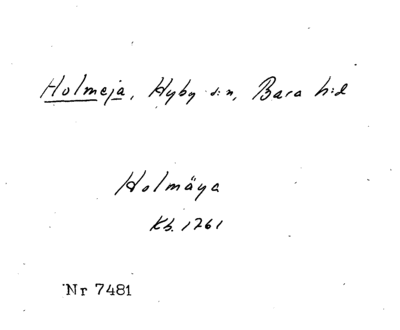 Holmeja, Hyby s:n, Bara h:d
Holmäya
Kb. 1761
Nr 7481